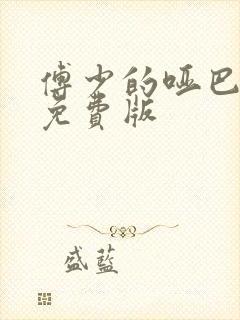 傅少的哑巴
免費版
盛藍